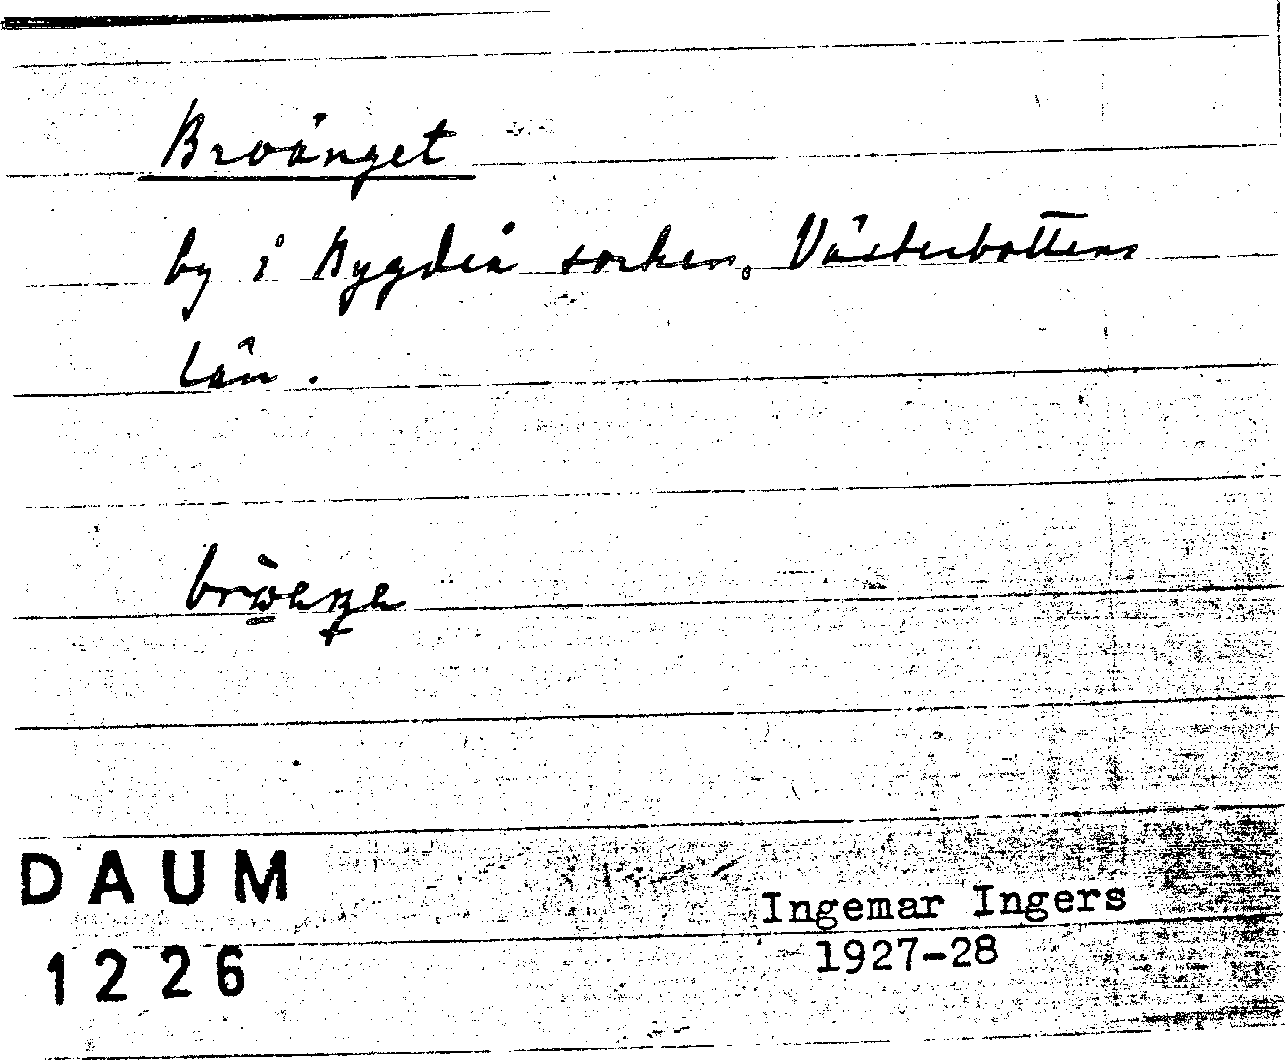 Broänget
by i Bygdeå socken, Västerbottens
län.
DAUM
1226
Ingemar Ingers
1927-28